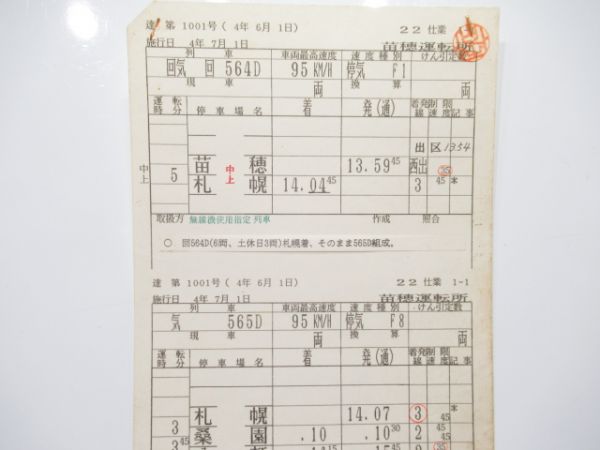 達 第 1001号( 4年 6月 1日) 22 仕業
施行日 4年 7月 1日 苗穂運転所
列 車 車両最高速度 速度種別 けん引定数
回気 回 564D 95 KM/H 停気 F1 両
現 車 両 換 算
運転時分 停車場名 着 発(通) 着発線 制限速度 記事
出区1354
5 苗 穂 中上 13.59 45 西出 35
中上 札 幌 14.04 45 3 45 *
取扱方 無線機使用指定列車 作成 照合
○ 回564D(6両、土休日3両)札幌着、そのまま565D組成。
達 第 1001号( 4年 6月 1日) 22 仕業 1-1
施行日 4年 7月 1日 苗穂運転所
列 車 車両最高速度 速度種別 けん引定数
気 565D 95 KM/H 停気 F8 両
現 車 両 換 算
運転時分 停車場名 着 発(通) 着発線 制限速度 記事
札 幌 14.07 3 45 *
3 45 桑 園 .10 .10 30 2 45